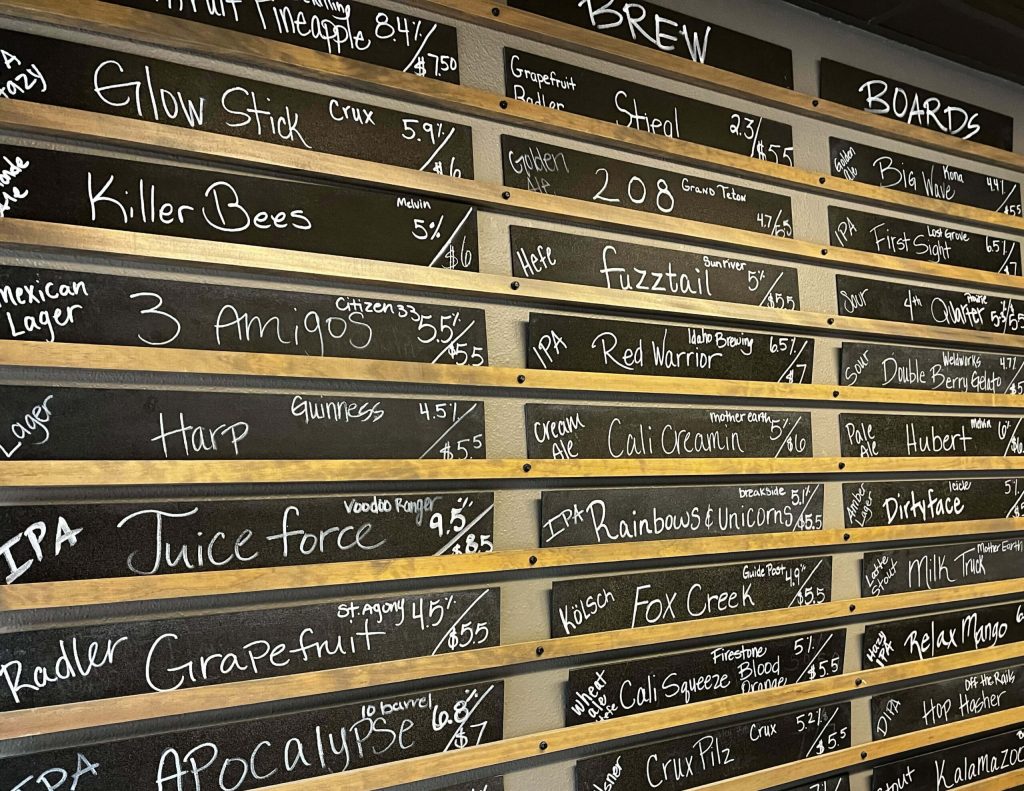 Pineapple 8.4%/$7.50
Glow Stick Crux 5.9%/$6
Killer Bees Melvin 5%/$6
Mexican Lager 3 Amigos Citizen 33 5.5%/$5.5
Lager Harp Guinness 4.5%/$5.5
IPA Juice force Voodoo Ranger 9.5%/$8.5
Radler Grapefruit St. Agony 4.5%/$5.5
IPA Apocalypse 10 barrel 6.8%/$7
BREW
Grapefruit Radler Stiegl 2.3/$5.5
Golden Ale 208 Grand Teton 4.7/5.5
Hefe fuzztail Sunriver 5%/$5.5
IPA Red Warrior Idaho Brewing 6.5%/$7
Cream Ale Cali Creamin mother earth 5%/$6
IPA Rainbows & Unicorns breakside 5.1%/$5.5
Kölsch Fox Creek Guide Post 4.9%/$5.5
Wheat ale Cali Squeeze Blood Orange Firestone 5%/$5.5
Crux Pilz Crux 5.2%/$5.5
BOARDS
Golden Ale Big Wave Kona 4.4%/$5.5
IPA First Sight Lost Grove 6.5%/$7
Sour 4th Quarter Prairie
Sour Double Berry Gelato Weldwerks 4.7%
Pale Ale Hubert Melvin 6%/$6
Amber Lager Dirtyface Icicle 5%
Latte Stout Milk Truck Mother Earth
Hazy IPA Relax Mango
DIPA Hop Hasher Off the Rails
Stout Kalamazoo